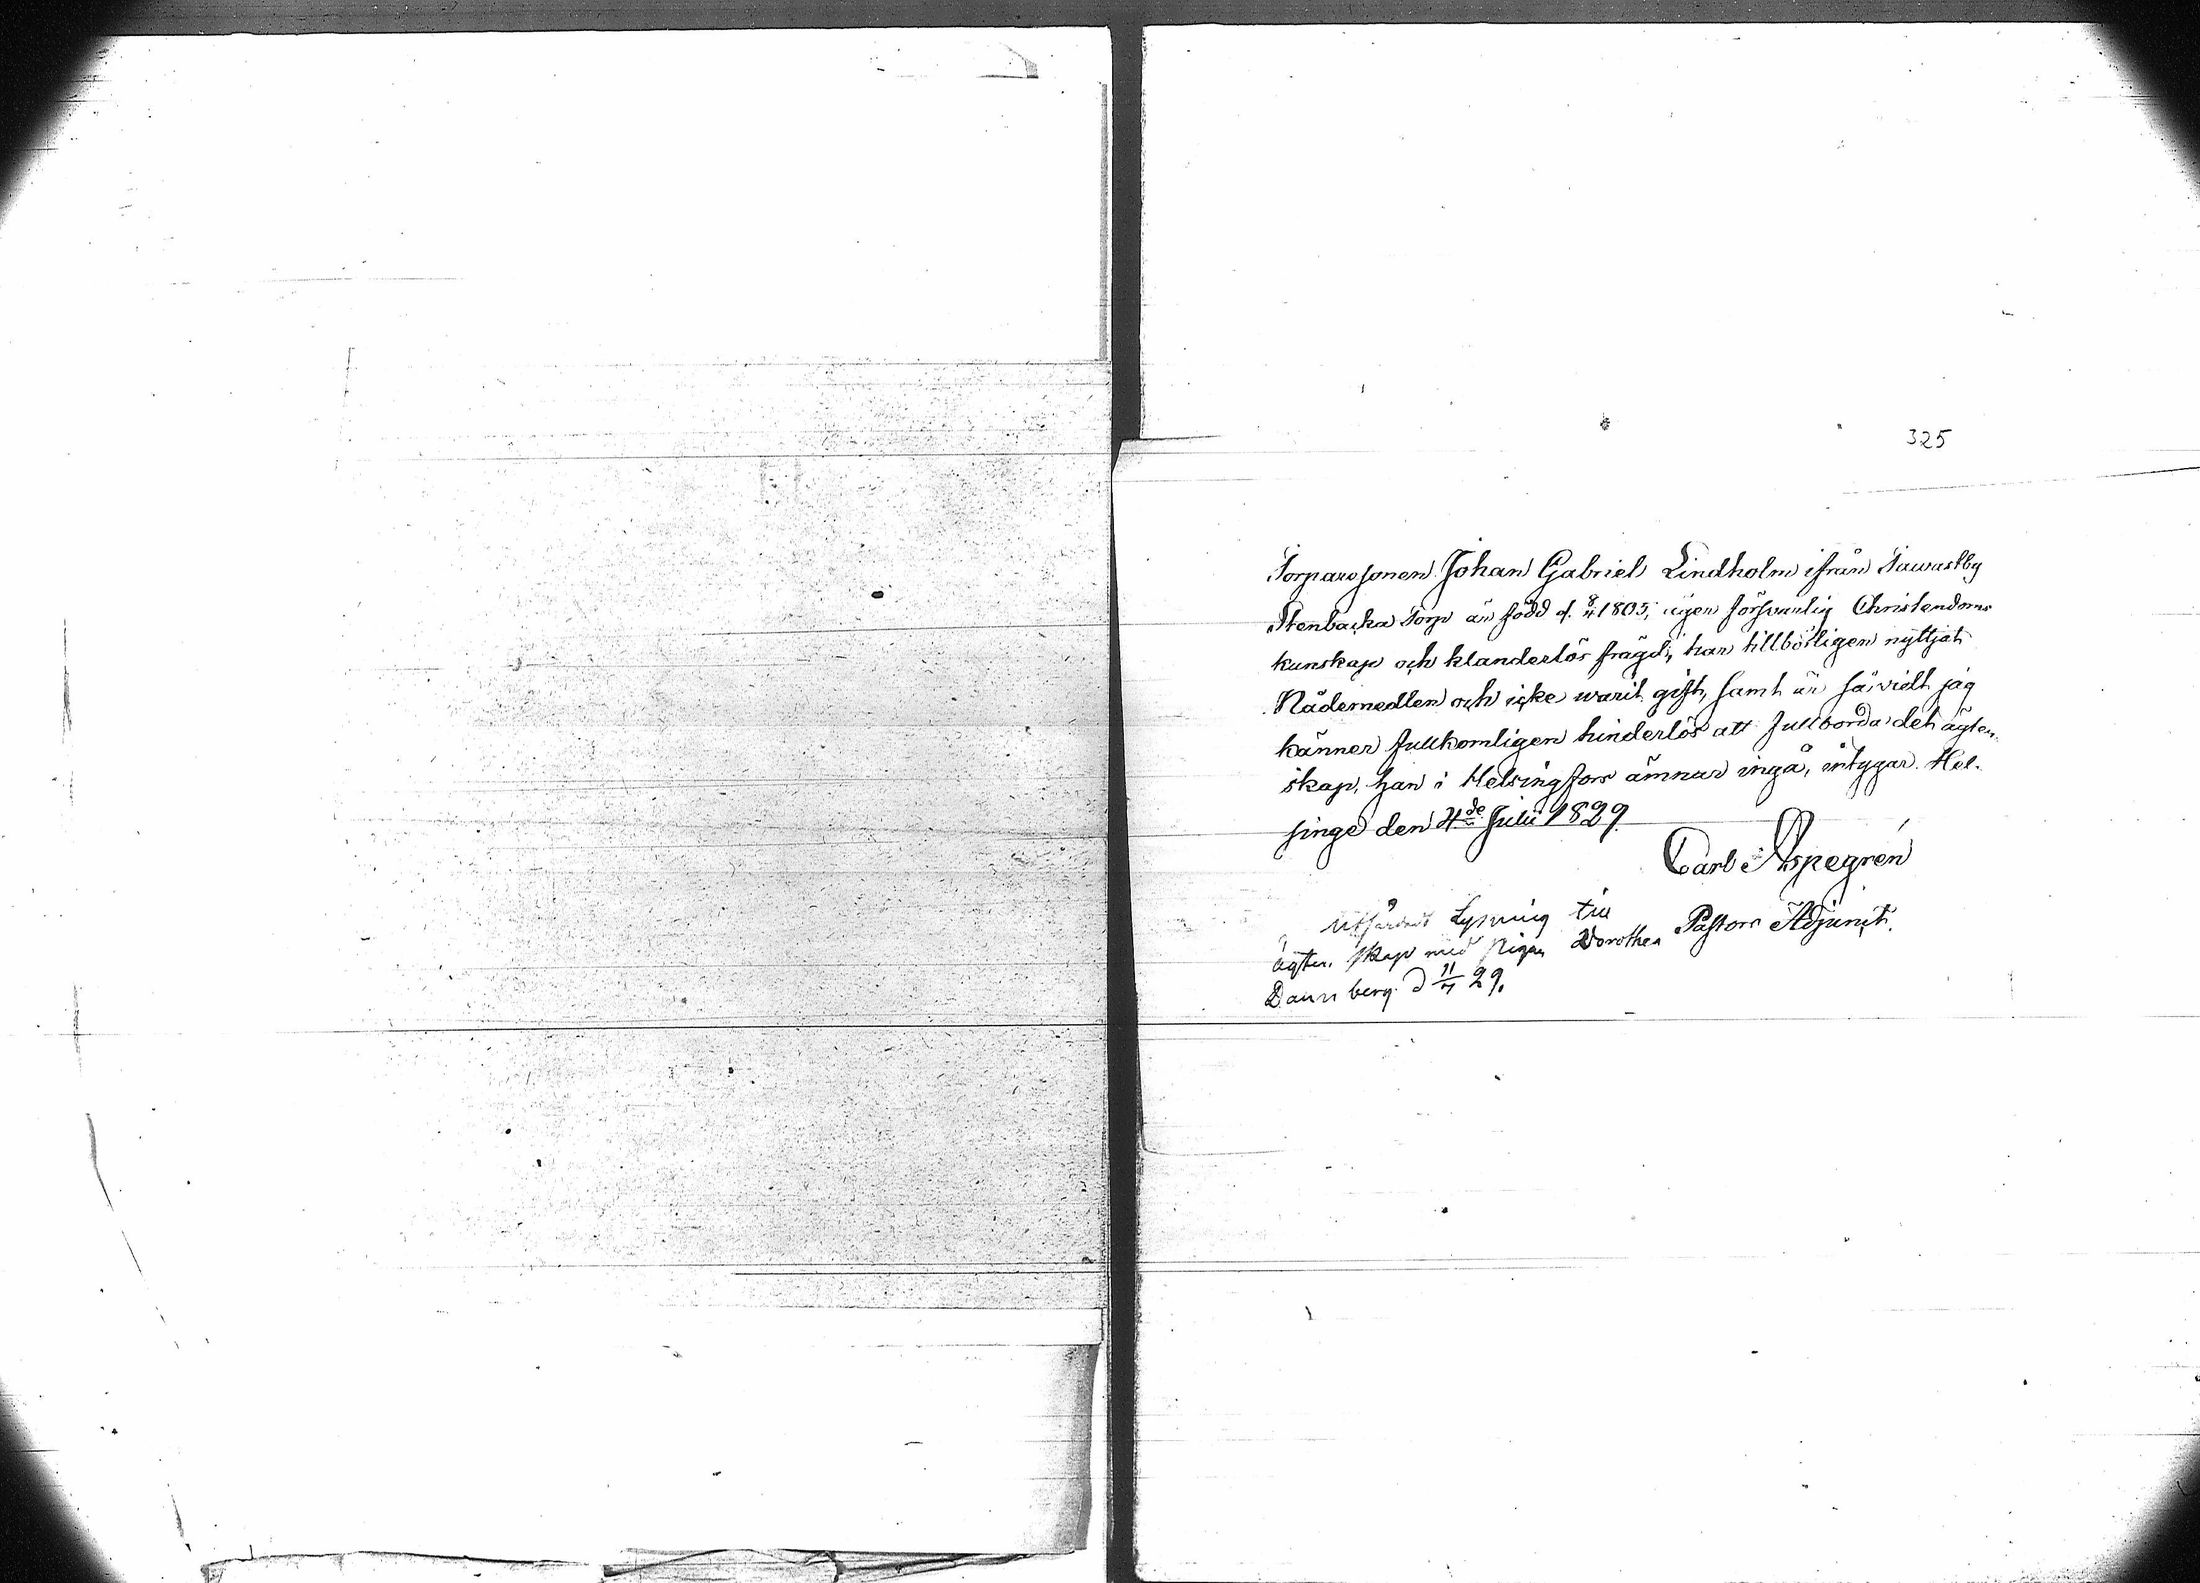 325
Torparesonen Johan Gabriel Lindholm ifrån Tawastby
Stenbacka Torp är född d. 8/4 1805, äger försvarlig Christendoms
kunskap och klanderlös frägd, har tillbörligen nyttjat
Nådemedlen och icke warit gift, samt är såvidt jag
känner fullkomligen hinderlös att fullborda det ägten-
skap, han i Helsingfors ämnar ingå, intygar. Hel-
singe den 4de Julii 1829.
Carl Aspegrén
Pastors Adjunct.
Utfärdat Lysning till
ägtenskap med Pigan Dorothea
Dannberg d 11/7 29.